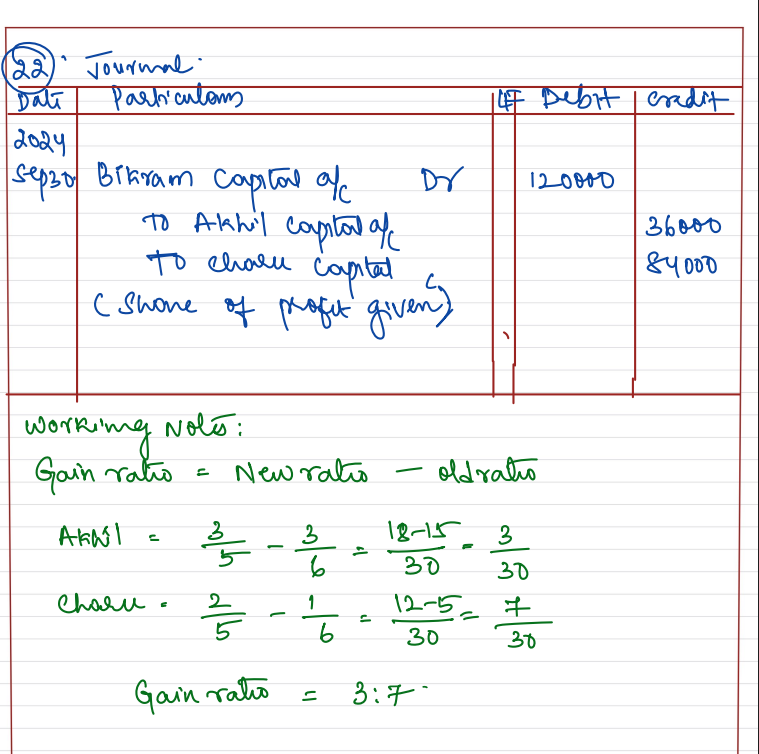 22. Journal.
Date Particulars LF Debit Credit
2024
Sep30 Bikram Capital a/c Dr 120000
To Akhil Capital a/c 36000
To charu Capital 84000
(Share of profit given)
Working Notes:
Gain ratio = New ratio - old ratio
Akhil = 3/5 - 3/6 = 18-15/30 = 3/30
Charu = 2/5 - 1/6 = 12-5/30 = 7/30
Gain ratio = 3:7